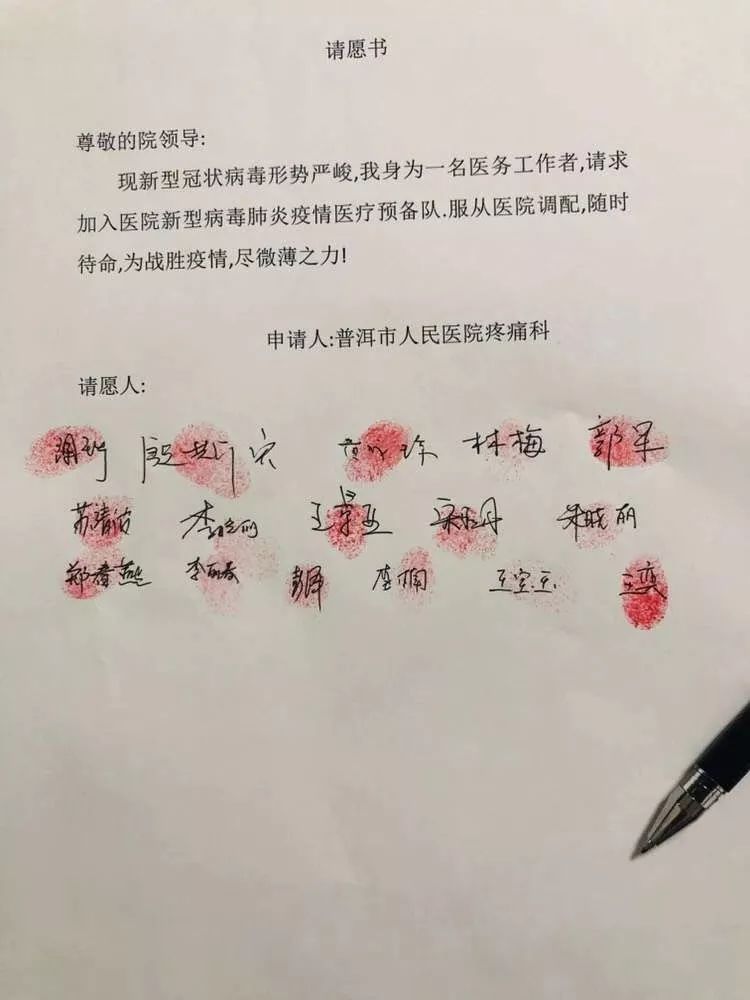 请愿书
尊敬的院领导:
现新型冠状病毒形势严峻,我身为一名医务工作者,请求
加入医院新型病毒肺炎疫情医疗预备队.服从医院调配,随时
待命,为战胜疫情,尽微薄之力!
申请人:普洱市人民医院疼痛科
请愿人:
林梅
李晓丽 朱晓丽
郑春燕 李丽春 彭泽